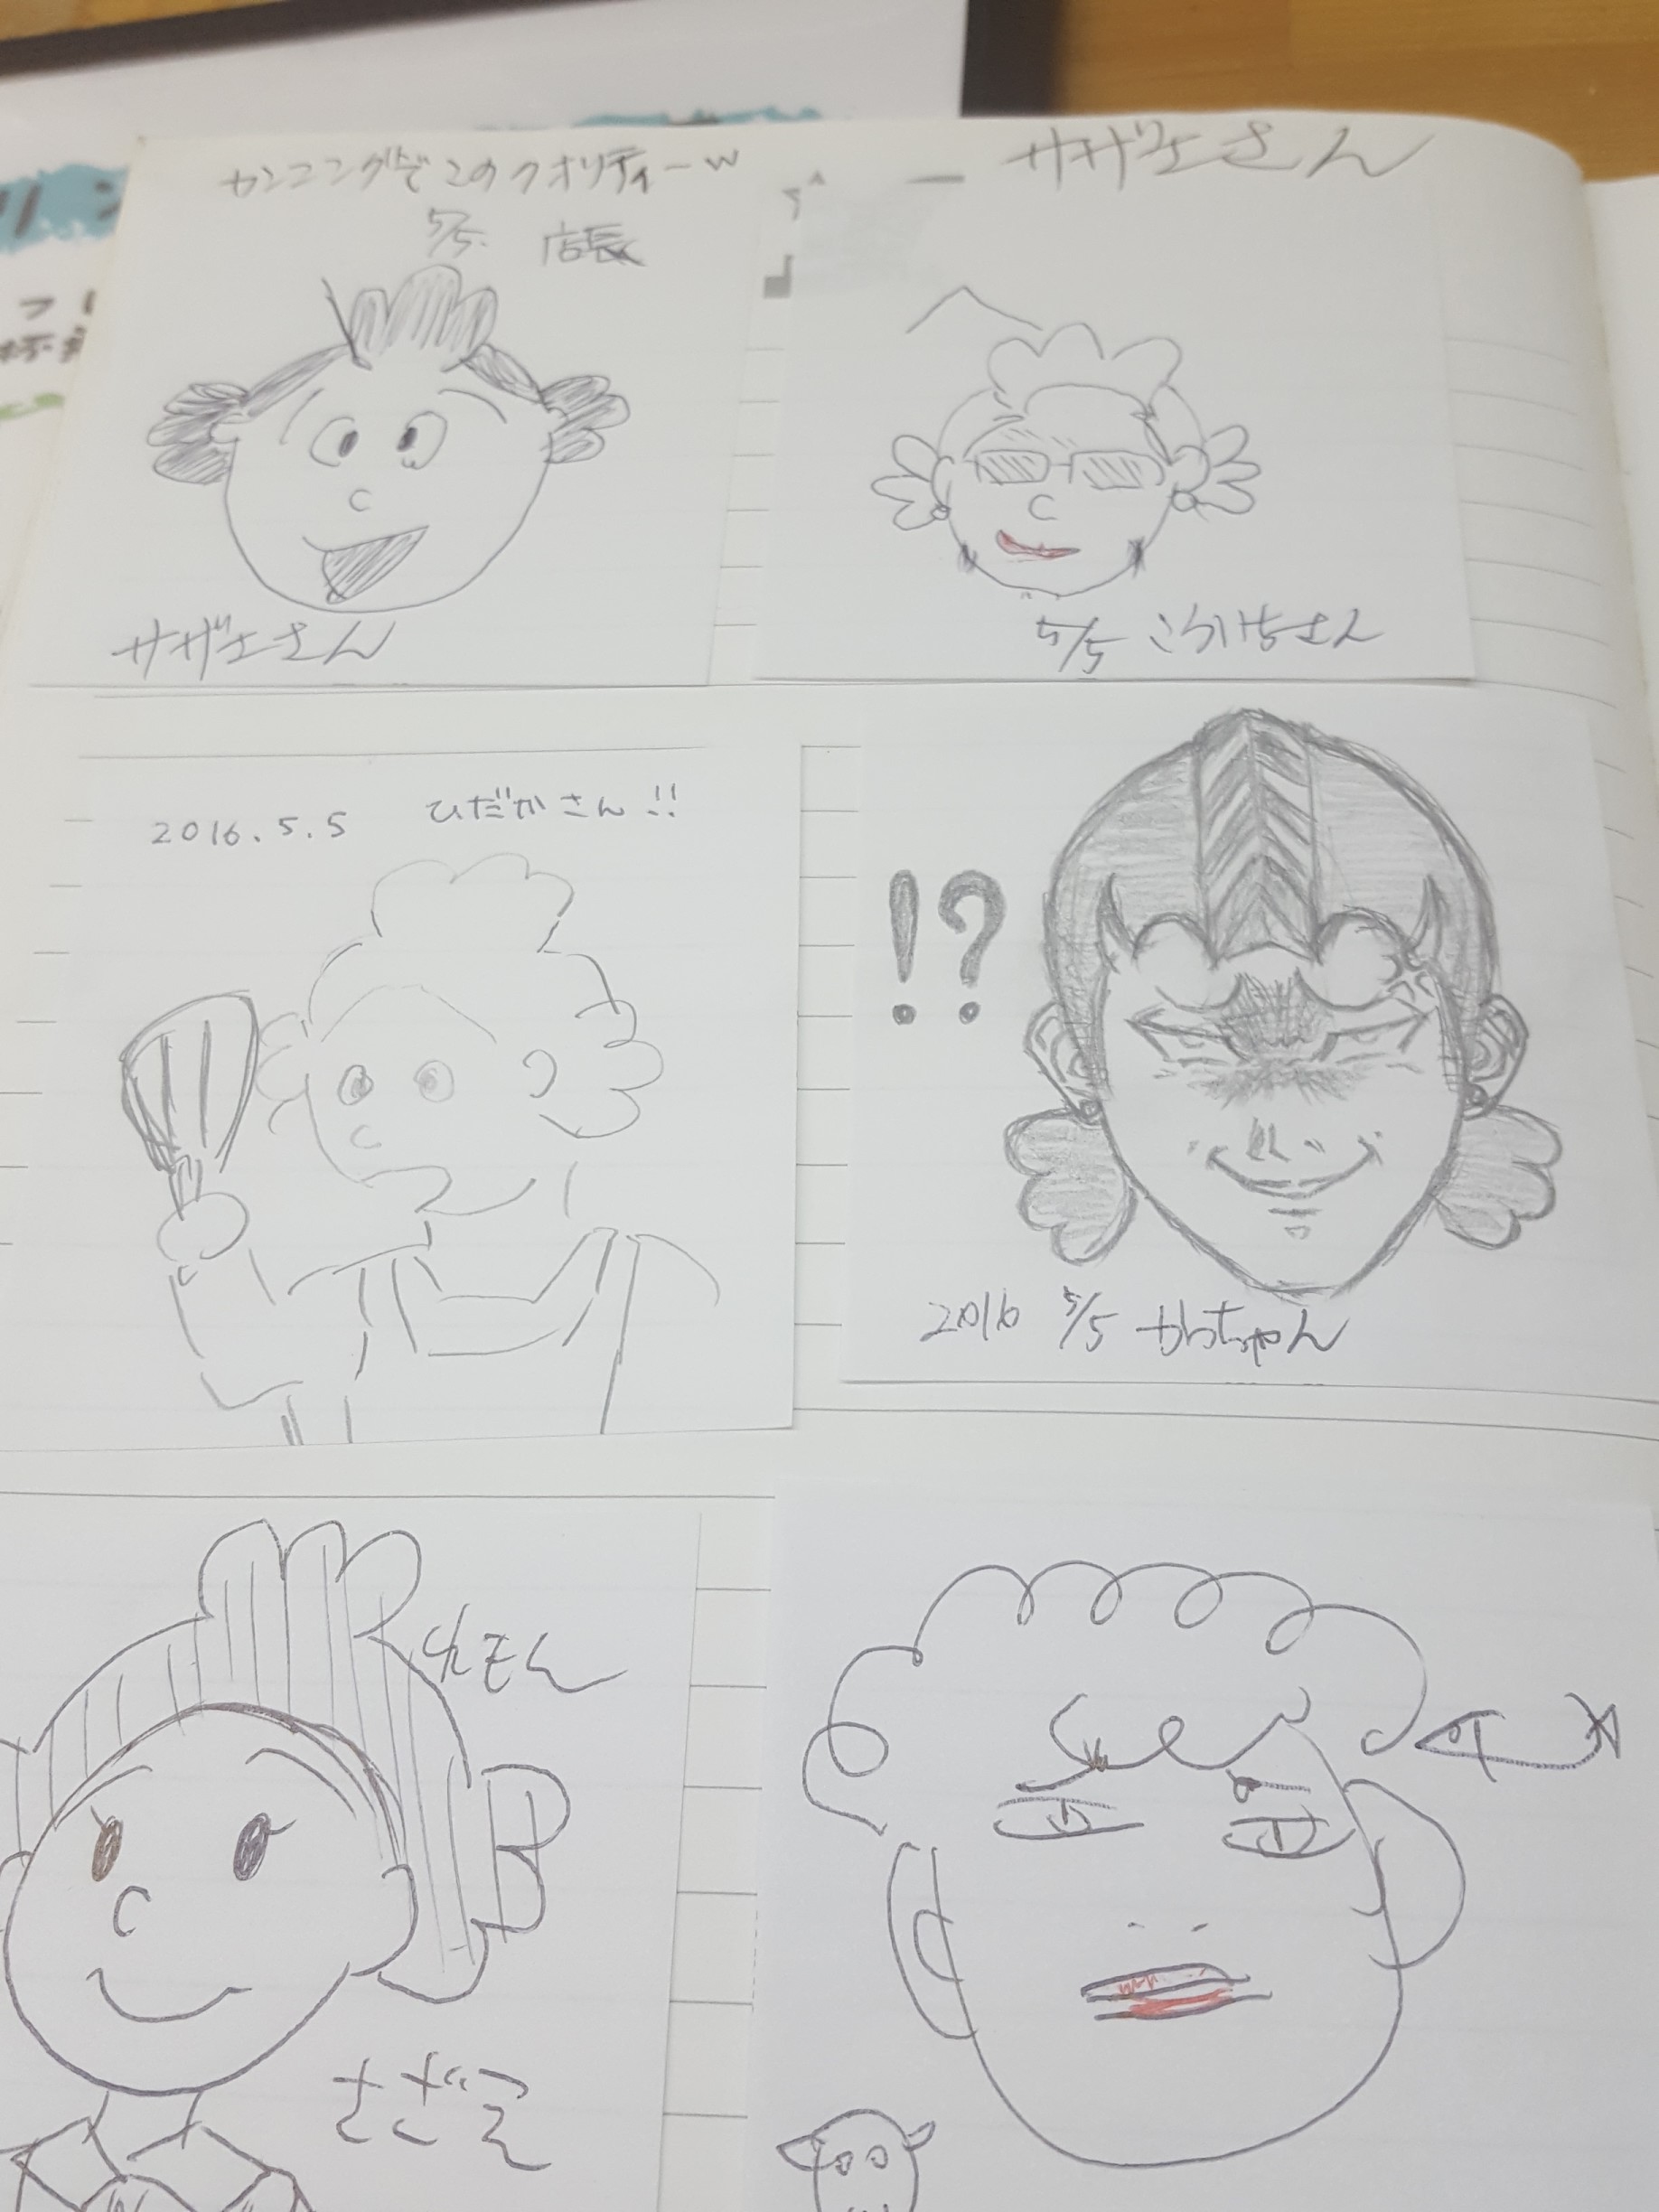 カンニングでこのクオリティーw
5/5 店長
サザエさん
サザエさん
5/5 こういちさん
2016.5.5 ひだかさん!!
!?
2016 5/5 かっちゃん
さざえ